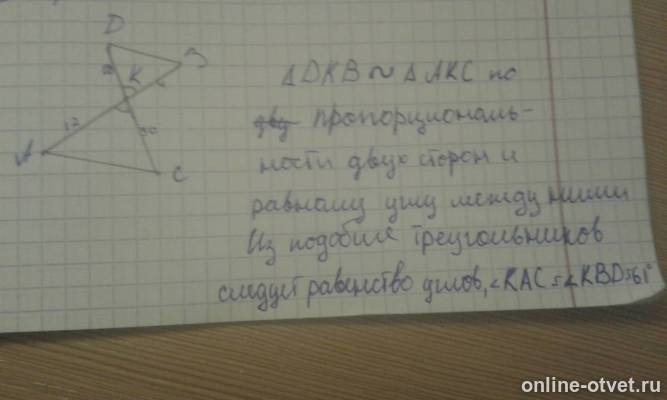 D
B
K
12
A
C
△DKB ~ △AKC по
пропорциональ-
ности двух сторон и
равному углу между ними
Из подобия треугольников
следует равенство углов, ∠KAC = ∠KBD = 61°
online-otvet.ru